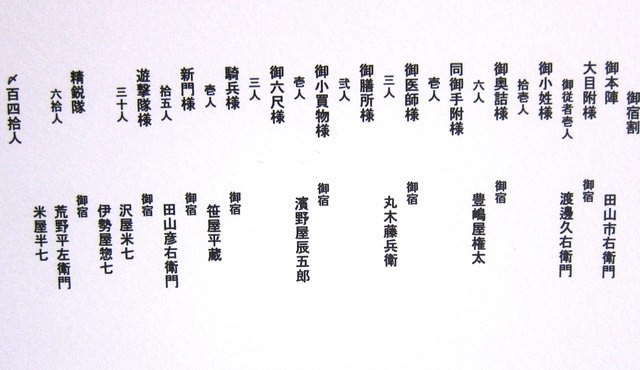 御宿割
御本陣 田山市右衛門
大目附様 御宿 渡邊久右衛門
御従者壱人
御小姓様
拾壱人
御奥詰様 御宿 豊嶋屋権太
六人
同御手附様
壱人
御医師様 御宿 丸木藤兵衛
三人
御膳所様
弐人
御小買物様 御宿 濱野屋辰五郎
壱人
御六尺様
三人
騎兵様 御宿 笹屋平蔵
壱人
新門様 御宿 田山彦右衛門
拾五人
遊撃隊様 御宿 沢屋米七
三十人 伊勢屋惣七
精鋭隊 御宿 荒野平左衛門
六拾人 米屋半七
〆百四拾人